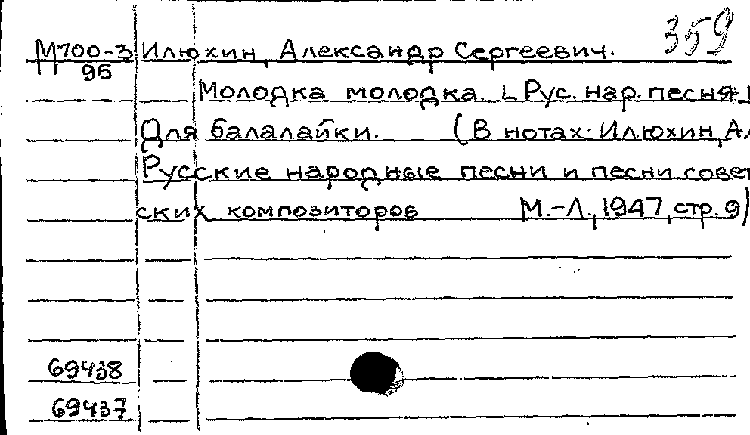 359
М700-3 Илюхин, Александр Сергеевич.
96
Молодка молодка. [Рус. нар. песня]
Для балалайки. (В нотах: Илюхин, А.
Русские народные песни и песни совет
ских композиторов М.-Л., 1947, стр. 9)
69438
69437